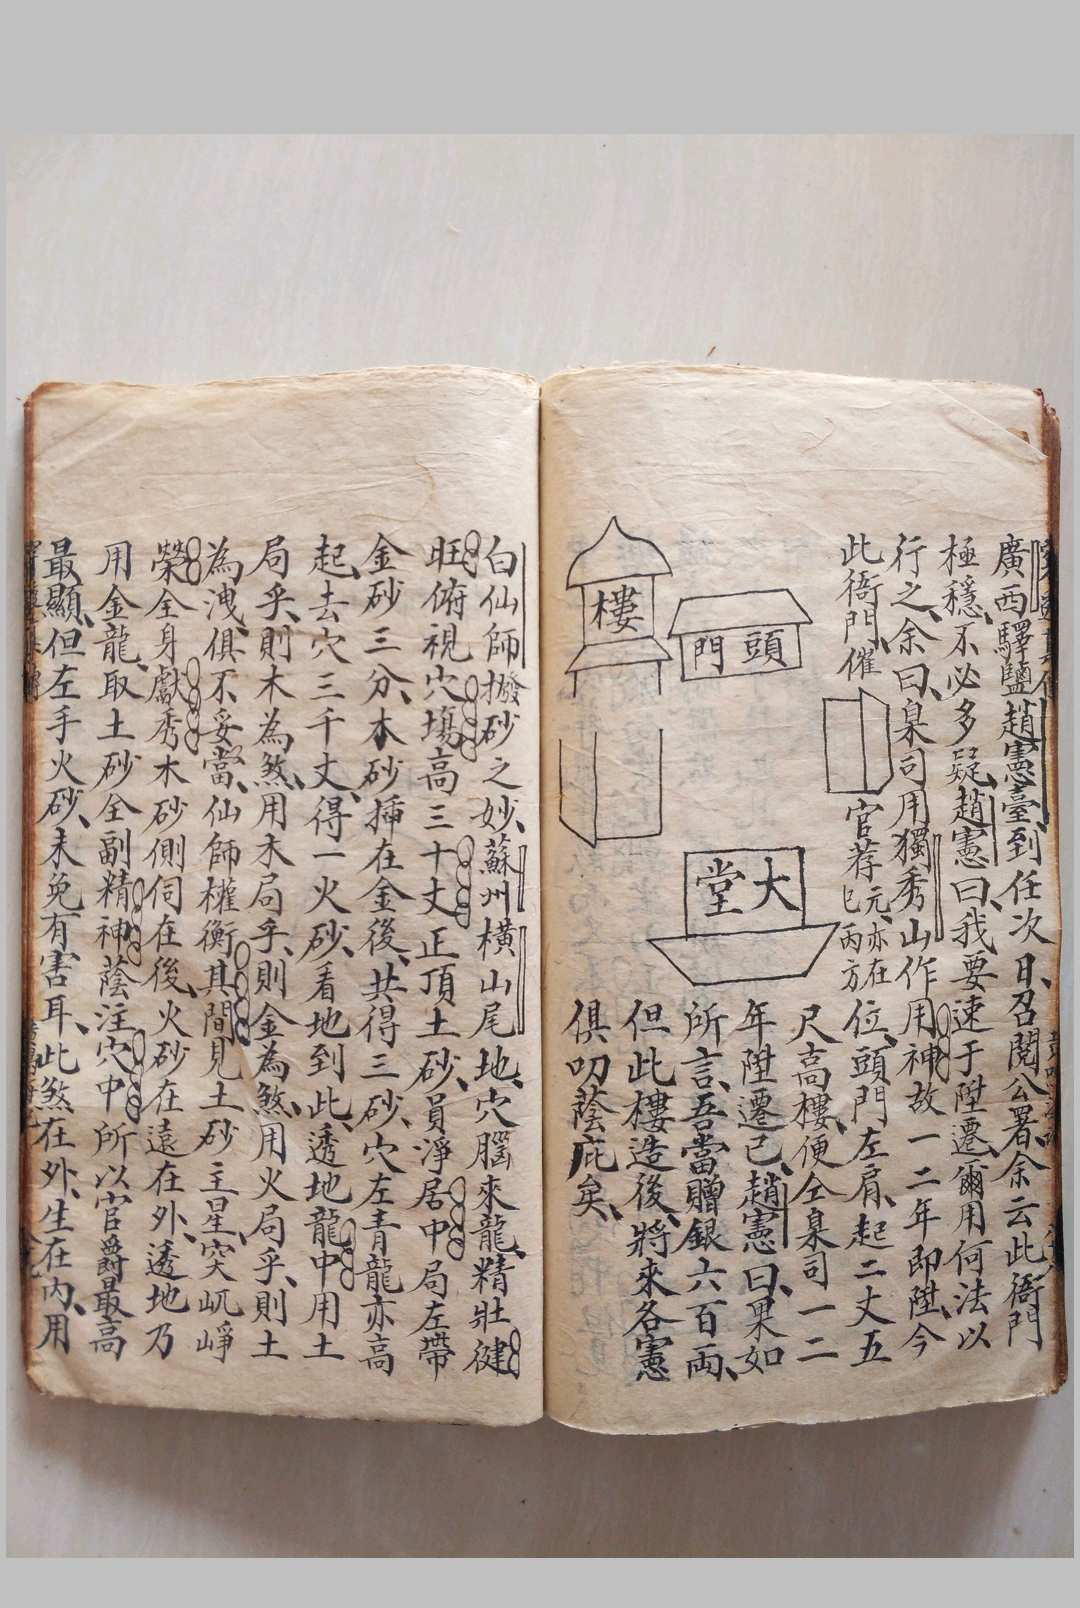 廣西驛鹽趙憲臺到任次日、召閱公署、余云此衙門
極穩、不必多疑、趙憲曰、我要速于陞遷、爾用何法以
行之、余曰、臬司用獨秀山作用神、故一二年即陞、今
此衙門、催官荐元、亦在巳丙方位、頭門左肩、起二丈五
尺高樓、便仝臬司一二
年陞遷已、趙憲曰、果如
所言、吾當贈銀六百両、
但此樓造後、將來各憲
俱叨蔭庇矣、
頭門
樓
大堂
白仙師撥砂之妙、蘇州橫山尾地、穴腦來龍、精壯健
旺、俯視穴塲高三十丈、正頂土砂、員淨居中、局左帶
金砂三分、本砂揷在金後、共得三砂、穴左青龍亦高
起、去穴三千丈、得一火砂、看地到此、透地龍中用土
局乎、則木為煞、用木局乎、則金為煞、用火局乎、則土
為洩、俱不妥當、仙師權衡其間、見土砂主星、突屼崢
榮、全身獻秀、木砂側伺在後、火砂在遠在外、透地乃
用金龍、取土砂全副精神、蔭注穴中、所以官爵最高
最顯、但左手火砂、未免有害耳、此煞在外、生在內、用